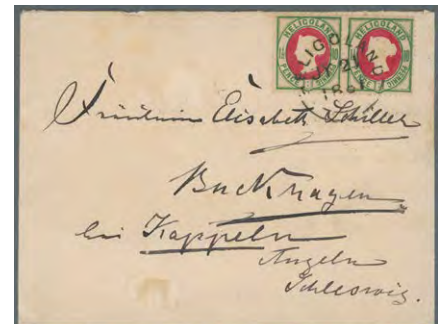 HELIGOLAND HELIGOLAND
LIGOLAND
JA 2
Fräulein Elisabeth Schiller
Buckhagen
bei Kappeln
Angeln
Schleswig.